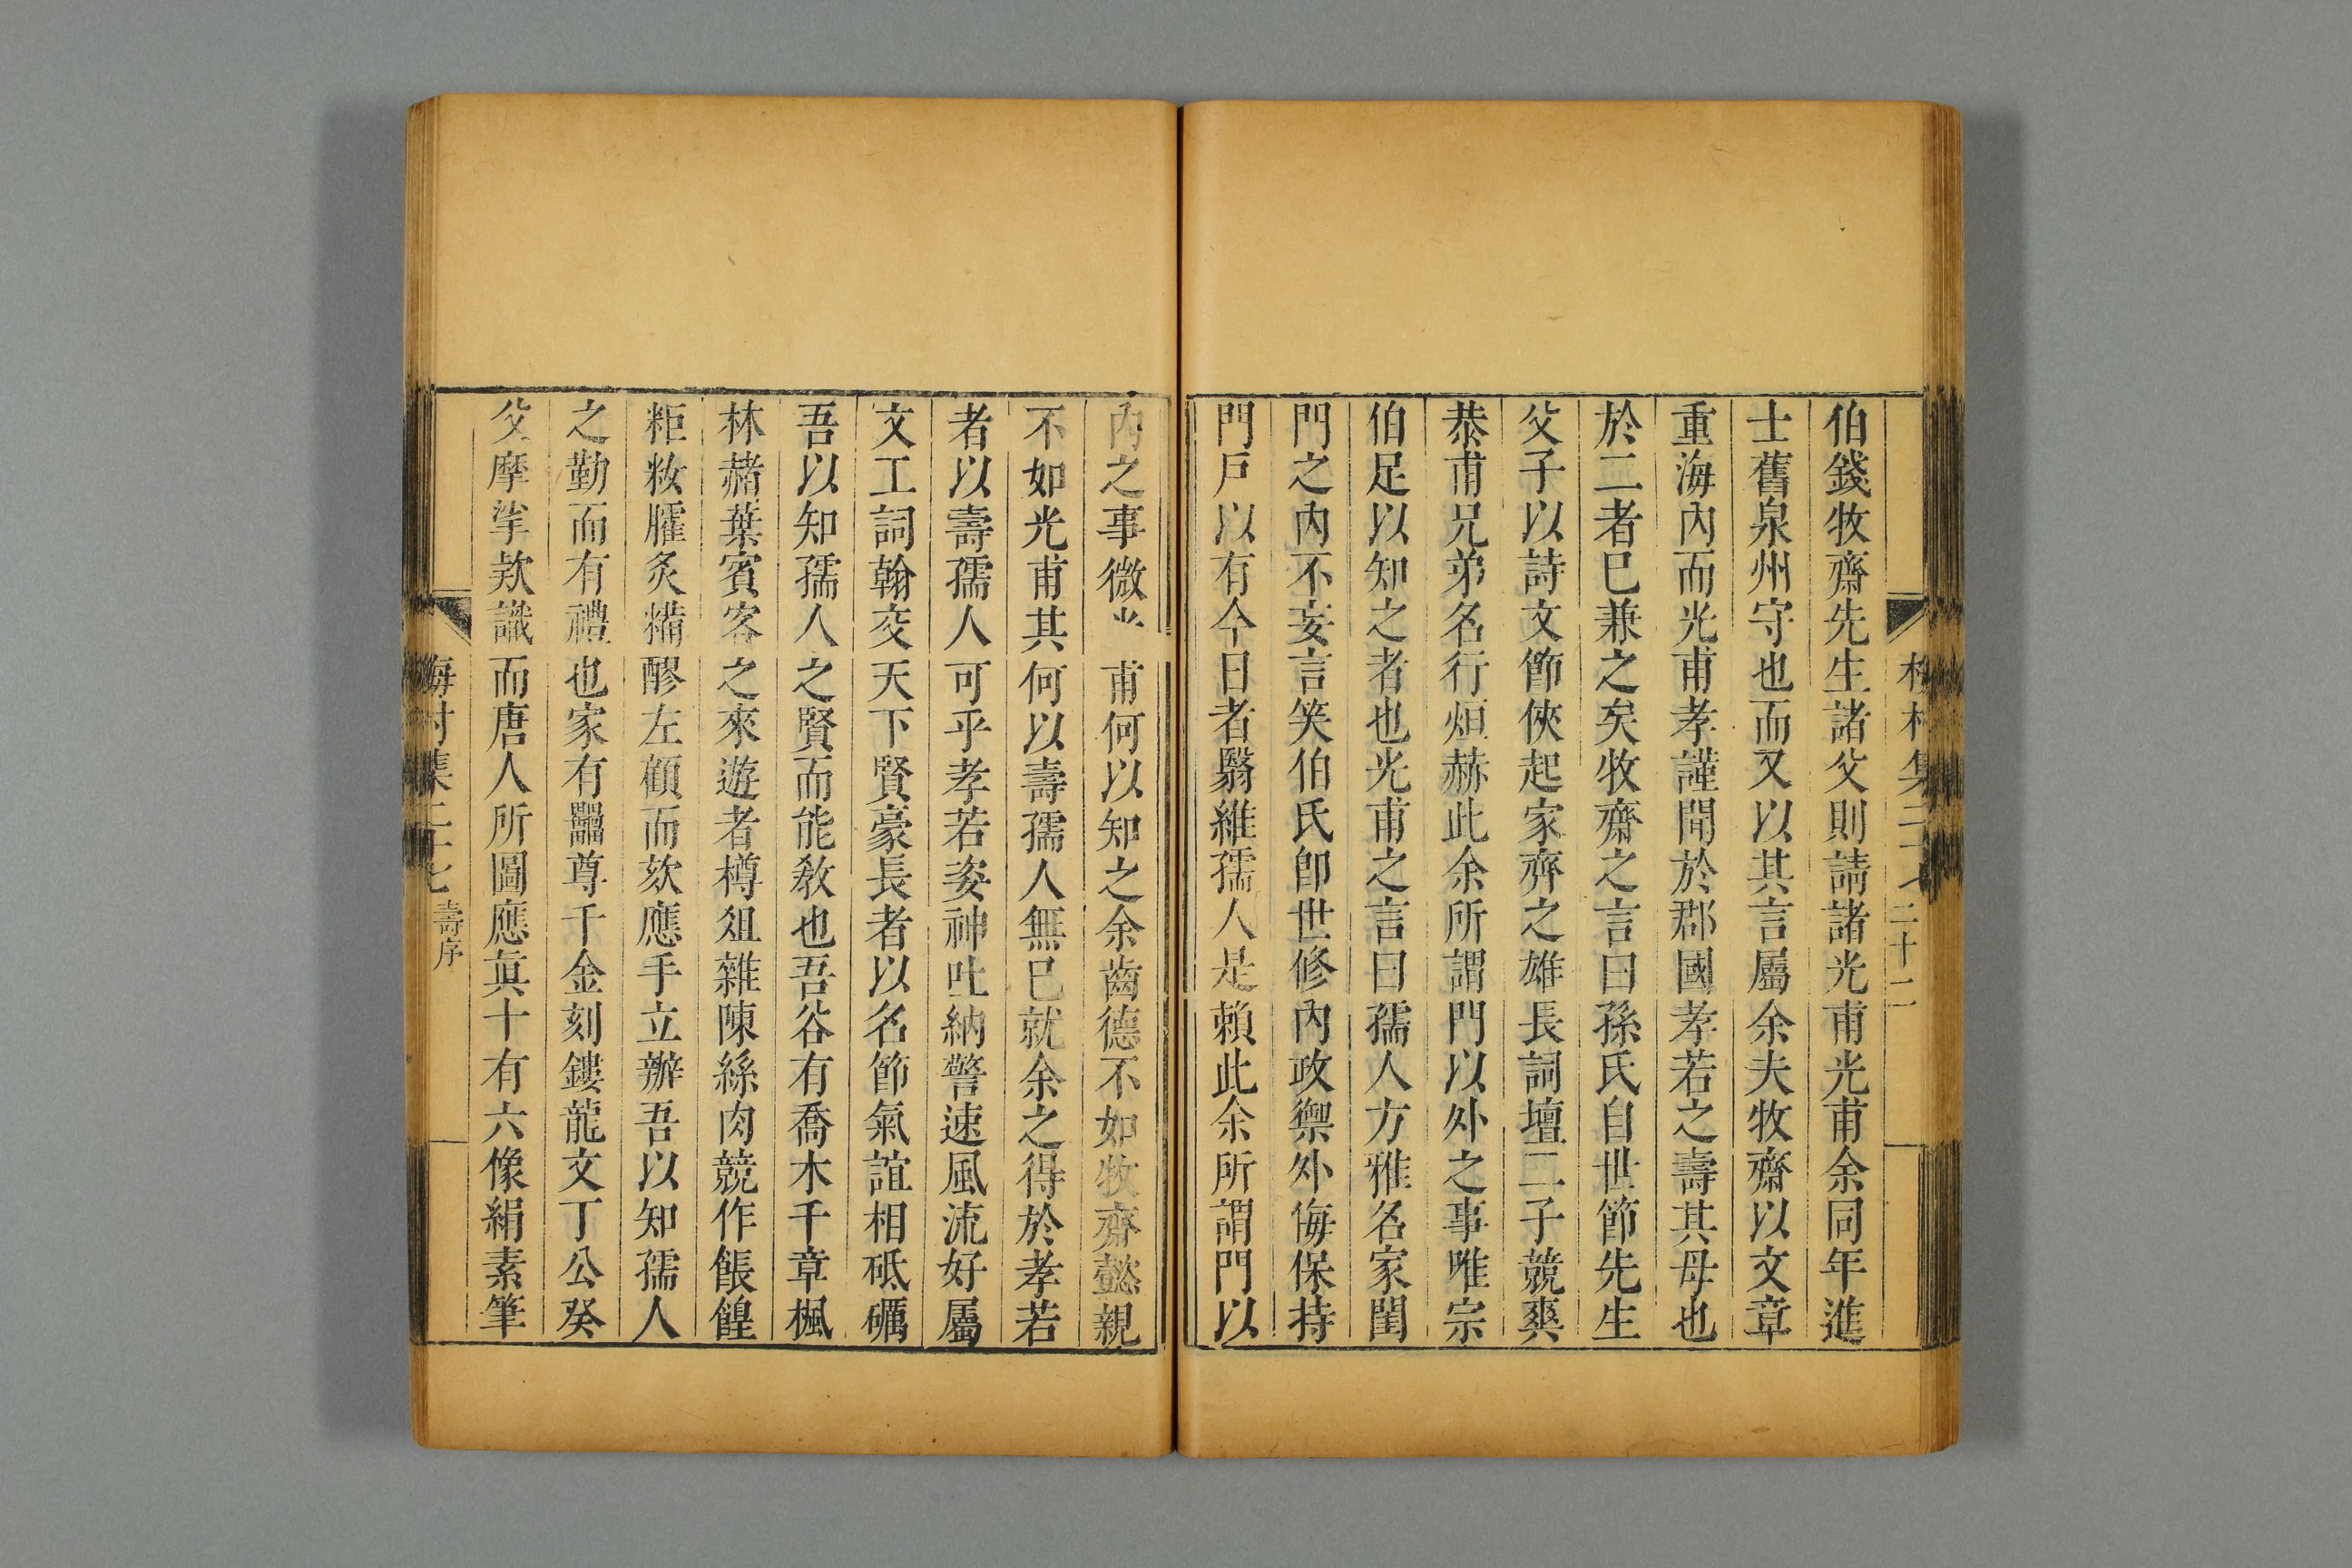 伯錢牧齋先生諸父則請諸光甫光甫余同年進
士舊泉州守也而又以其言屬余夫牧齋以文章
重海內而光甫孝謹聞於郡國孝若之壽其母也
於二者已兼之矣牧齋之言曰孫氏自世節先生
父子以詩文節俠起家齊之雄長詞壇二子競爽
恭甫兄弟名行烜赫此余所謂門以外之事唯宗
伯足以知之者也光甫之言曰孺人方雅名家閨
門之內不妄言笑伯氏卽世修內政禦外侮保持
門戶以有今日者繄維孺人是賴此余所謂門以
內之事微光甫何以知之余齒德不如牧齋懿親
不如光甫其何以壽孺人無已就余之得於孝若
者以壽孺人可乎孝若姿神吐納警速風流好屬
文工詞翰交天下賢豪長者以名節氣誼相砥礪
吾以知孺人之賢而能敎也吾谷有喬木千章楓
林赭葉賓客之來遊者樽俎雜陳絲肉競作餦餭
粔籹臛炙糒醪左顧而欬應手立辦吾以知孺人
之勤而有禮也家有罍尊千金刻鏤龍文丁公癸
父摩挲款識而唐人所圖應眞十有六像絹素筆
梅村集二十七 壽序
二十二